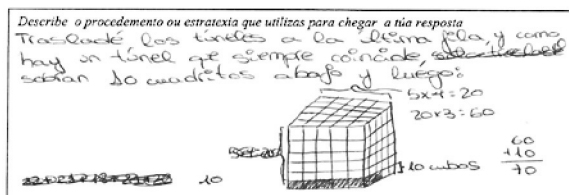 Describe o procedemento ou estratexia que utilizas para chegar a túa resposta
Trasladé los túneles a la última fila, y como
hay un túnel qe siempre coincide,
sobran 10 cuadritos abajo y luego:
5x4=20
20x3=60
60
+10
70
10 cubos
10